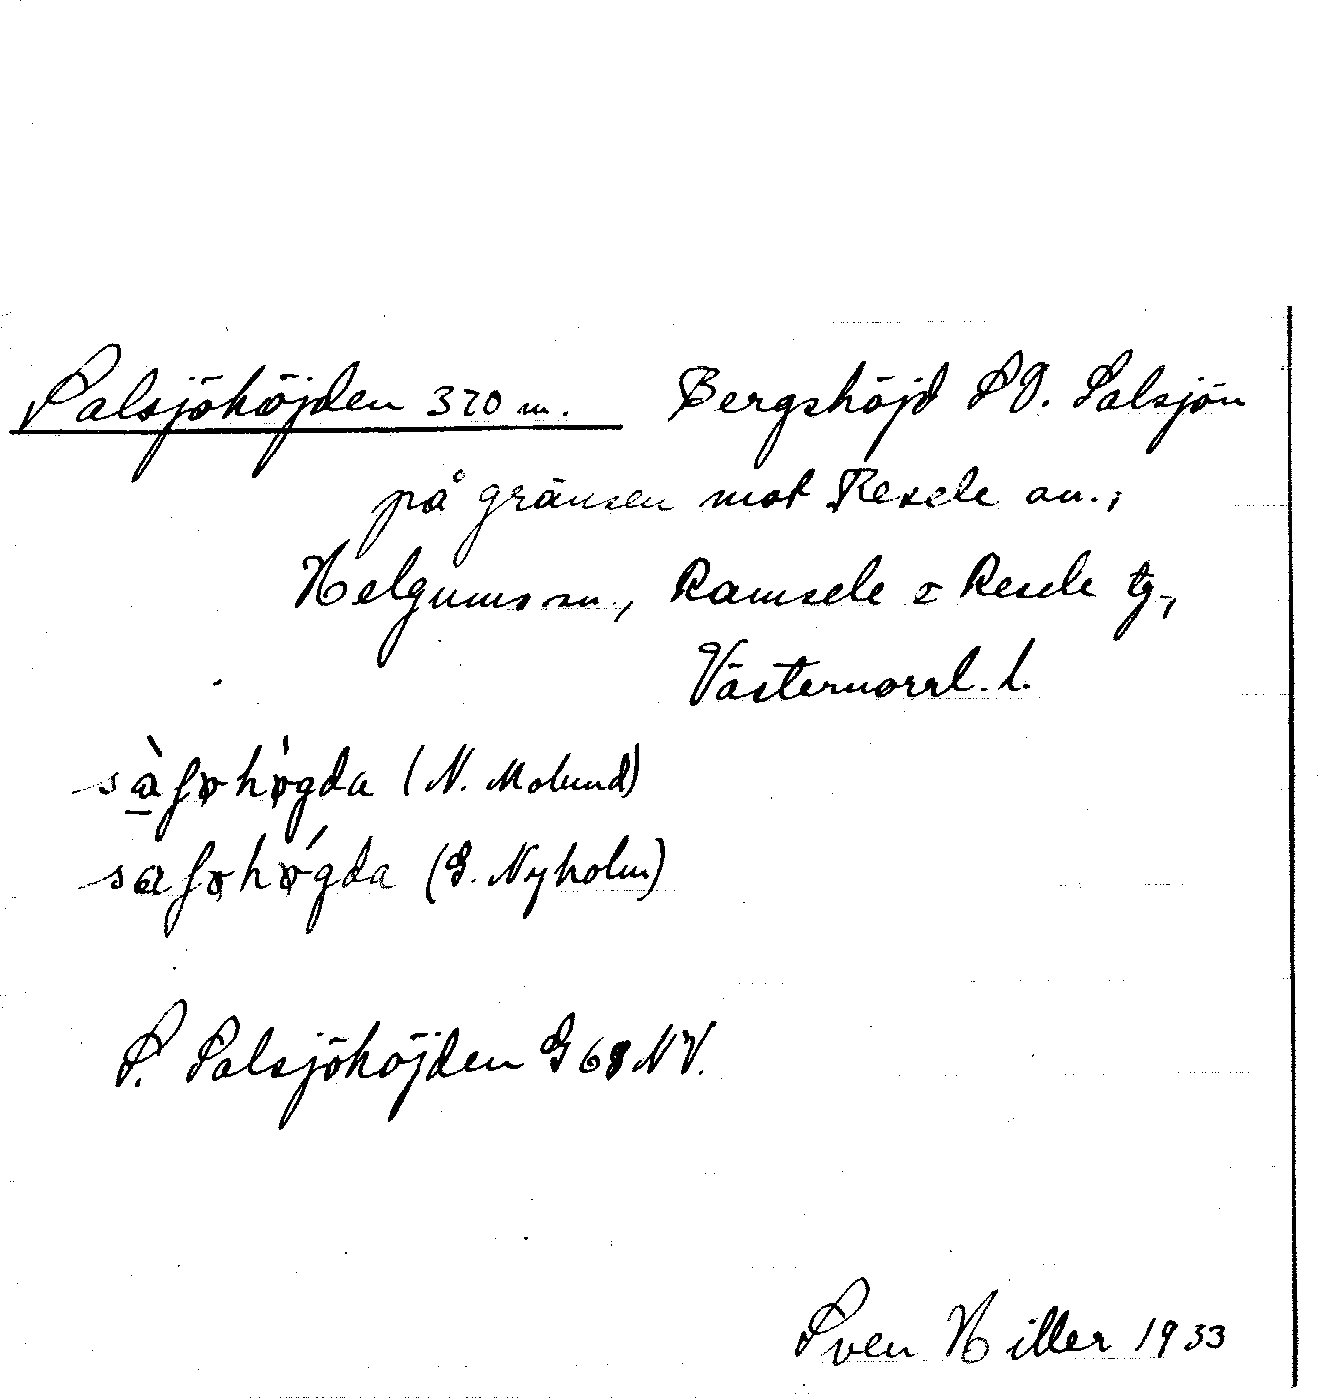 Salsjöhöjden 370 m. Bergshöjd SO. Salsjön
på gränsen mot Resele sn.,
Helgums sn., Ramsele o Resele tg.,
Västernorrl. l.
(N. Molund)
(E. Nyholm)
S. Salsjöhöjden G 68 NV.
Sven Hiller 1933